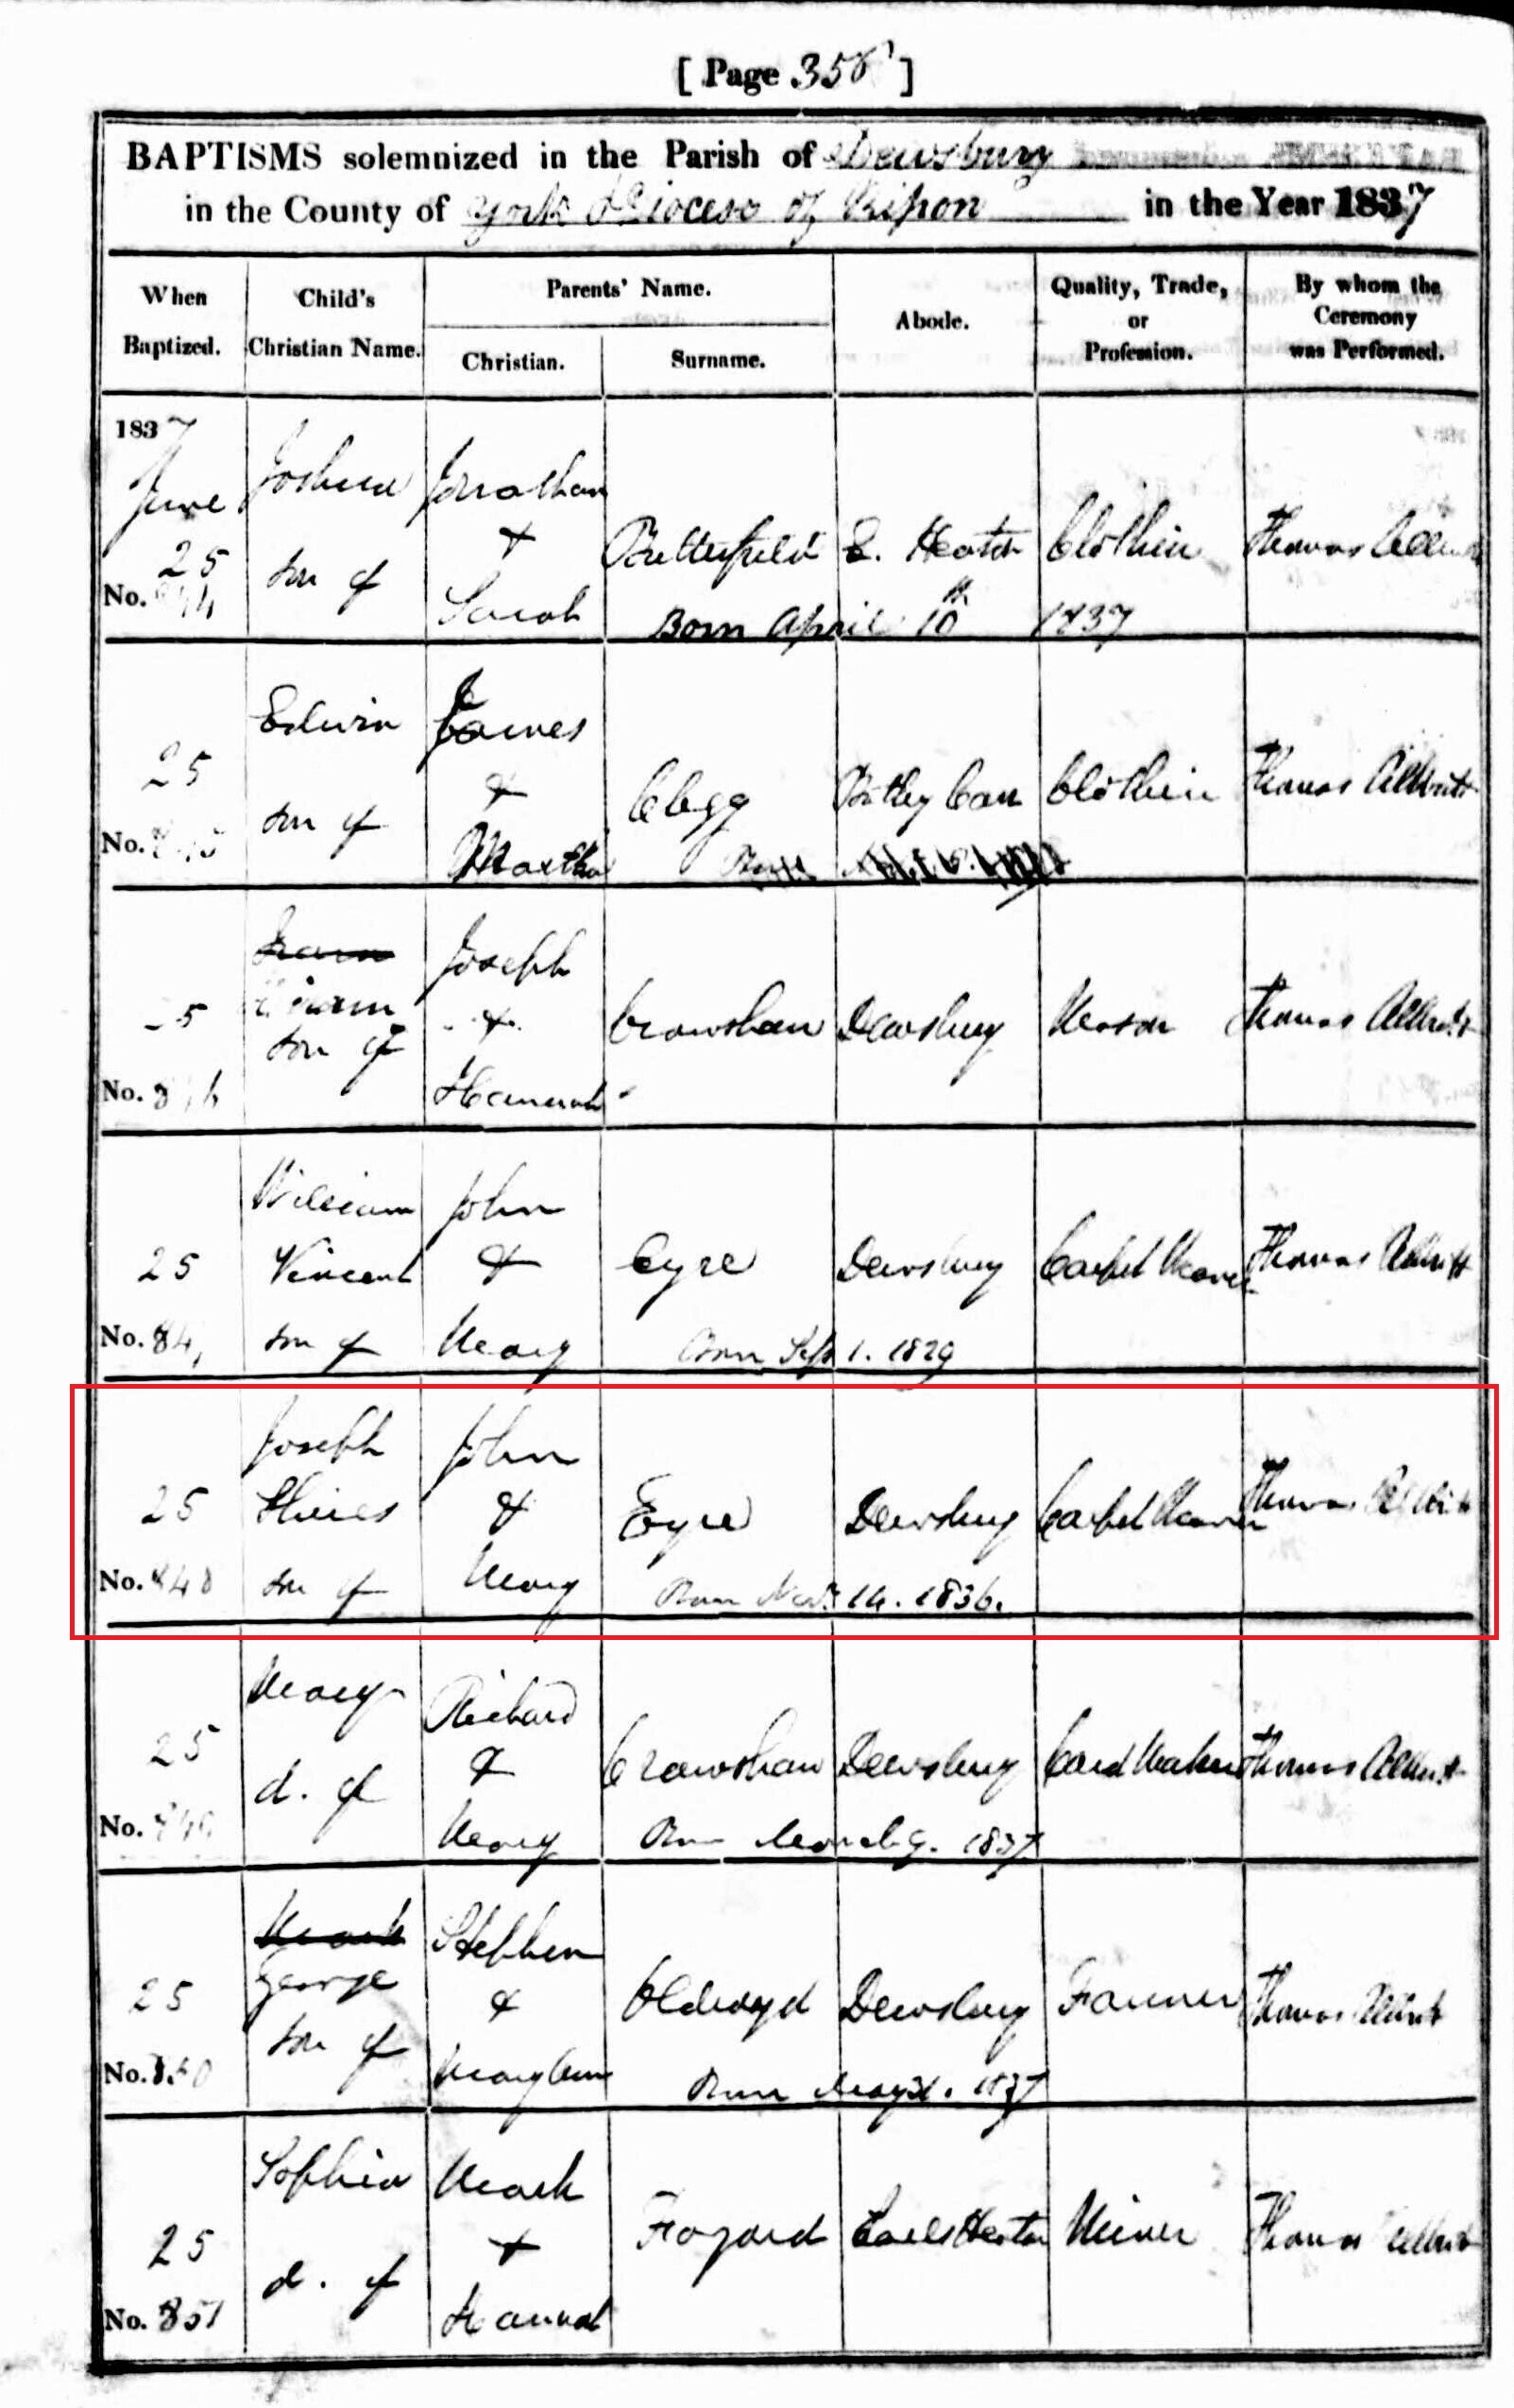 [ Page 358 ]
BAPTISMS solemnized in the Parish of Dewsbury
in the County of York Diocese of Ripon in the Year 1837
When Baptized. Child's Christian Name. Parents' Name. Abode. Quality, Trade, or Profession. By whom the Ceremony was Performed.
Christian. Surname.
1837
June Joshua Jonathan
25 son of & Butterfield E. Heaton Clothier Thomas Allbutt
No. Sarah Born April 10th 1837
Edwin James
25 son of & Clegg Batley Carr Clothier Thomas Allbutt
No. 845 Martha Born
Joseph
son of & Crowshaw Dewsbury Mason Thomas Allbutt
No. 846 Hannah
William John
25 Vincent & Eyre Dewsbury Carpet Weaver Thomas Allbutt
No. 84 son of Mary Born Sept 1. 1829
Joseph John
25 Shires & Eyre Dewsbury Carpet Weaver Thomas Allbutt
No. 848 son of Mary Born Nov. 14. 1836.
Mary Richard
25 d. of & Crowshaw Dewsbury Card Maker Thomas Allbutt
No. 849 Mary Born March 9. 1837
Mark Stephen
George
25 son of & Oldroyd Dewsbury Farmer Thomas Allbutt
No. 850 Mary Ann Born May 21. 1837
Sophia Mark
25 d. of & Fozard Earls Heaton Miner Thomas Allbutt
No. 851 Hannah